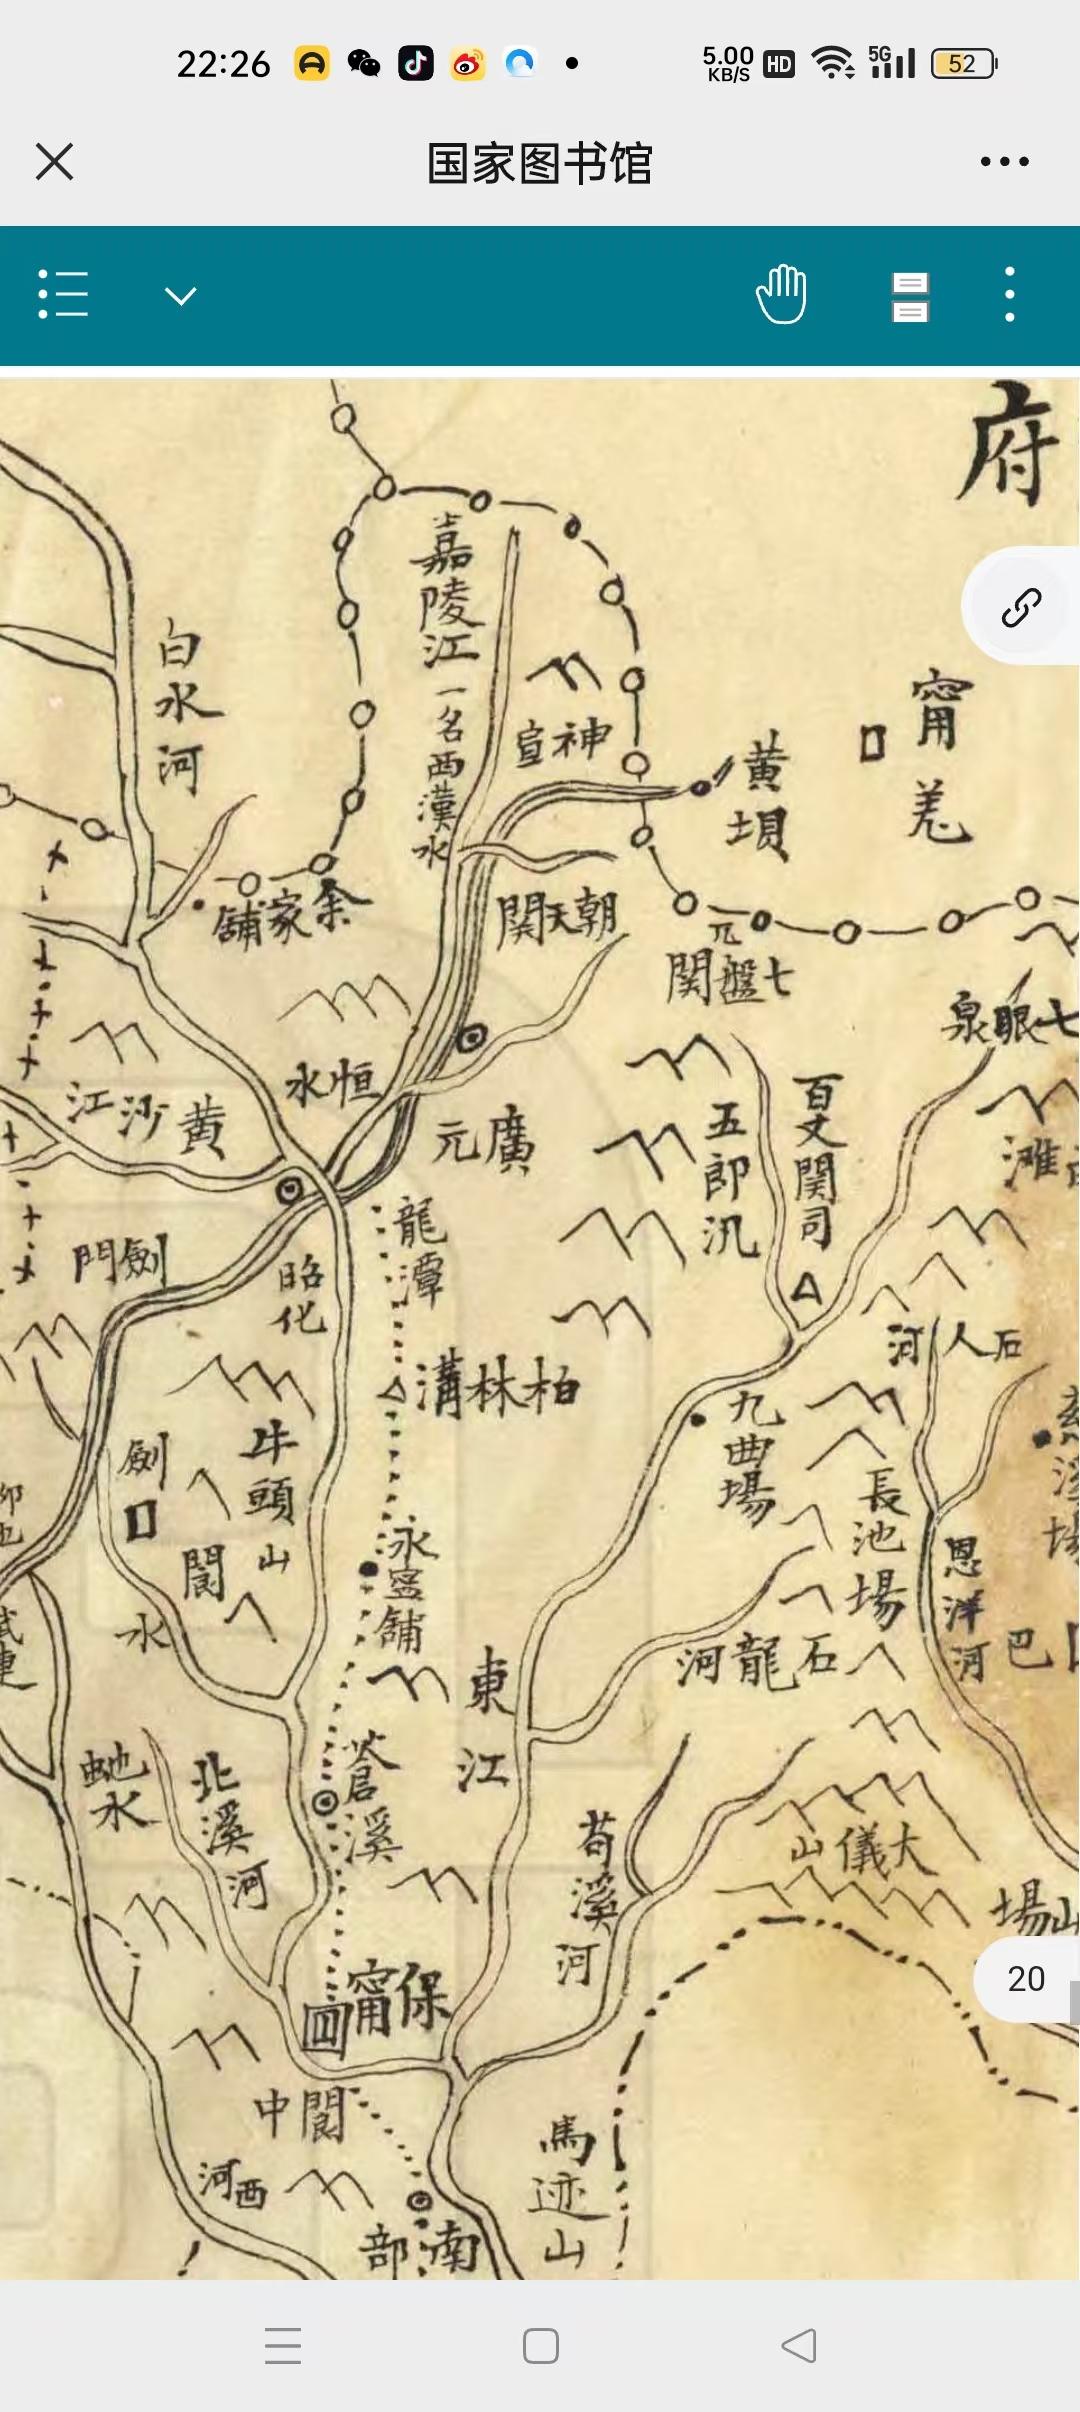 22:26
5.00 KB/S
HD
5G
52
国家图书馆
府
嘉陵江
一名西漢水
白水河
神宣
黄垻
甯羌
余家舖
朝天關
七盤關
七眼泉
恒水
黄沙江
廣元
五郎汛
百丈關司
龍潭
劍門
昭化
石人河
柏林溝
九曲場
劍
牛頭山
長池場
閬
水
永寧舖
恩洋河
巴
石龍河
東江
蒼溪
虵水
北溪河
苟溪河
大儀山
山場
保甯
閬中
馬迹山
西河
南部
20